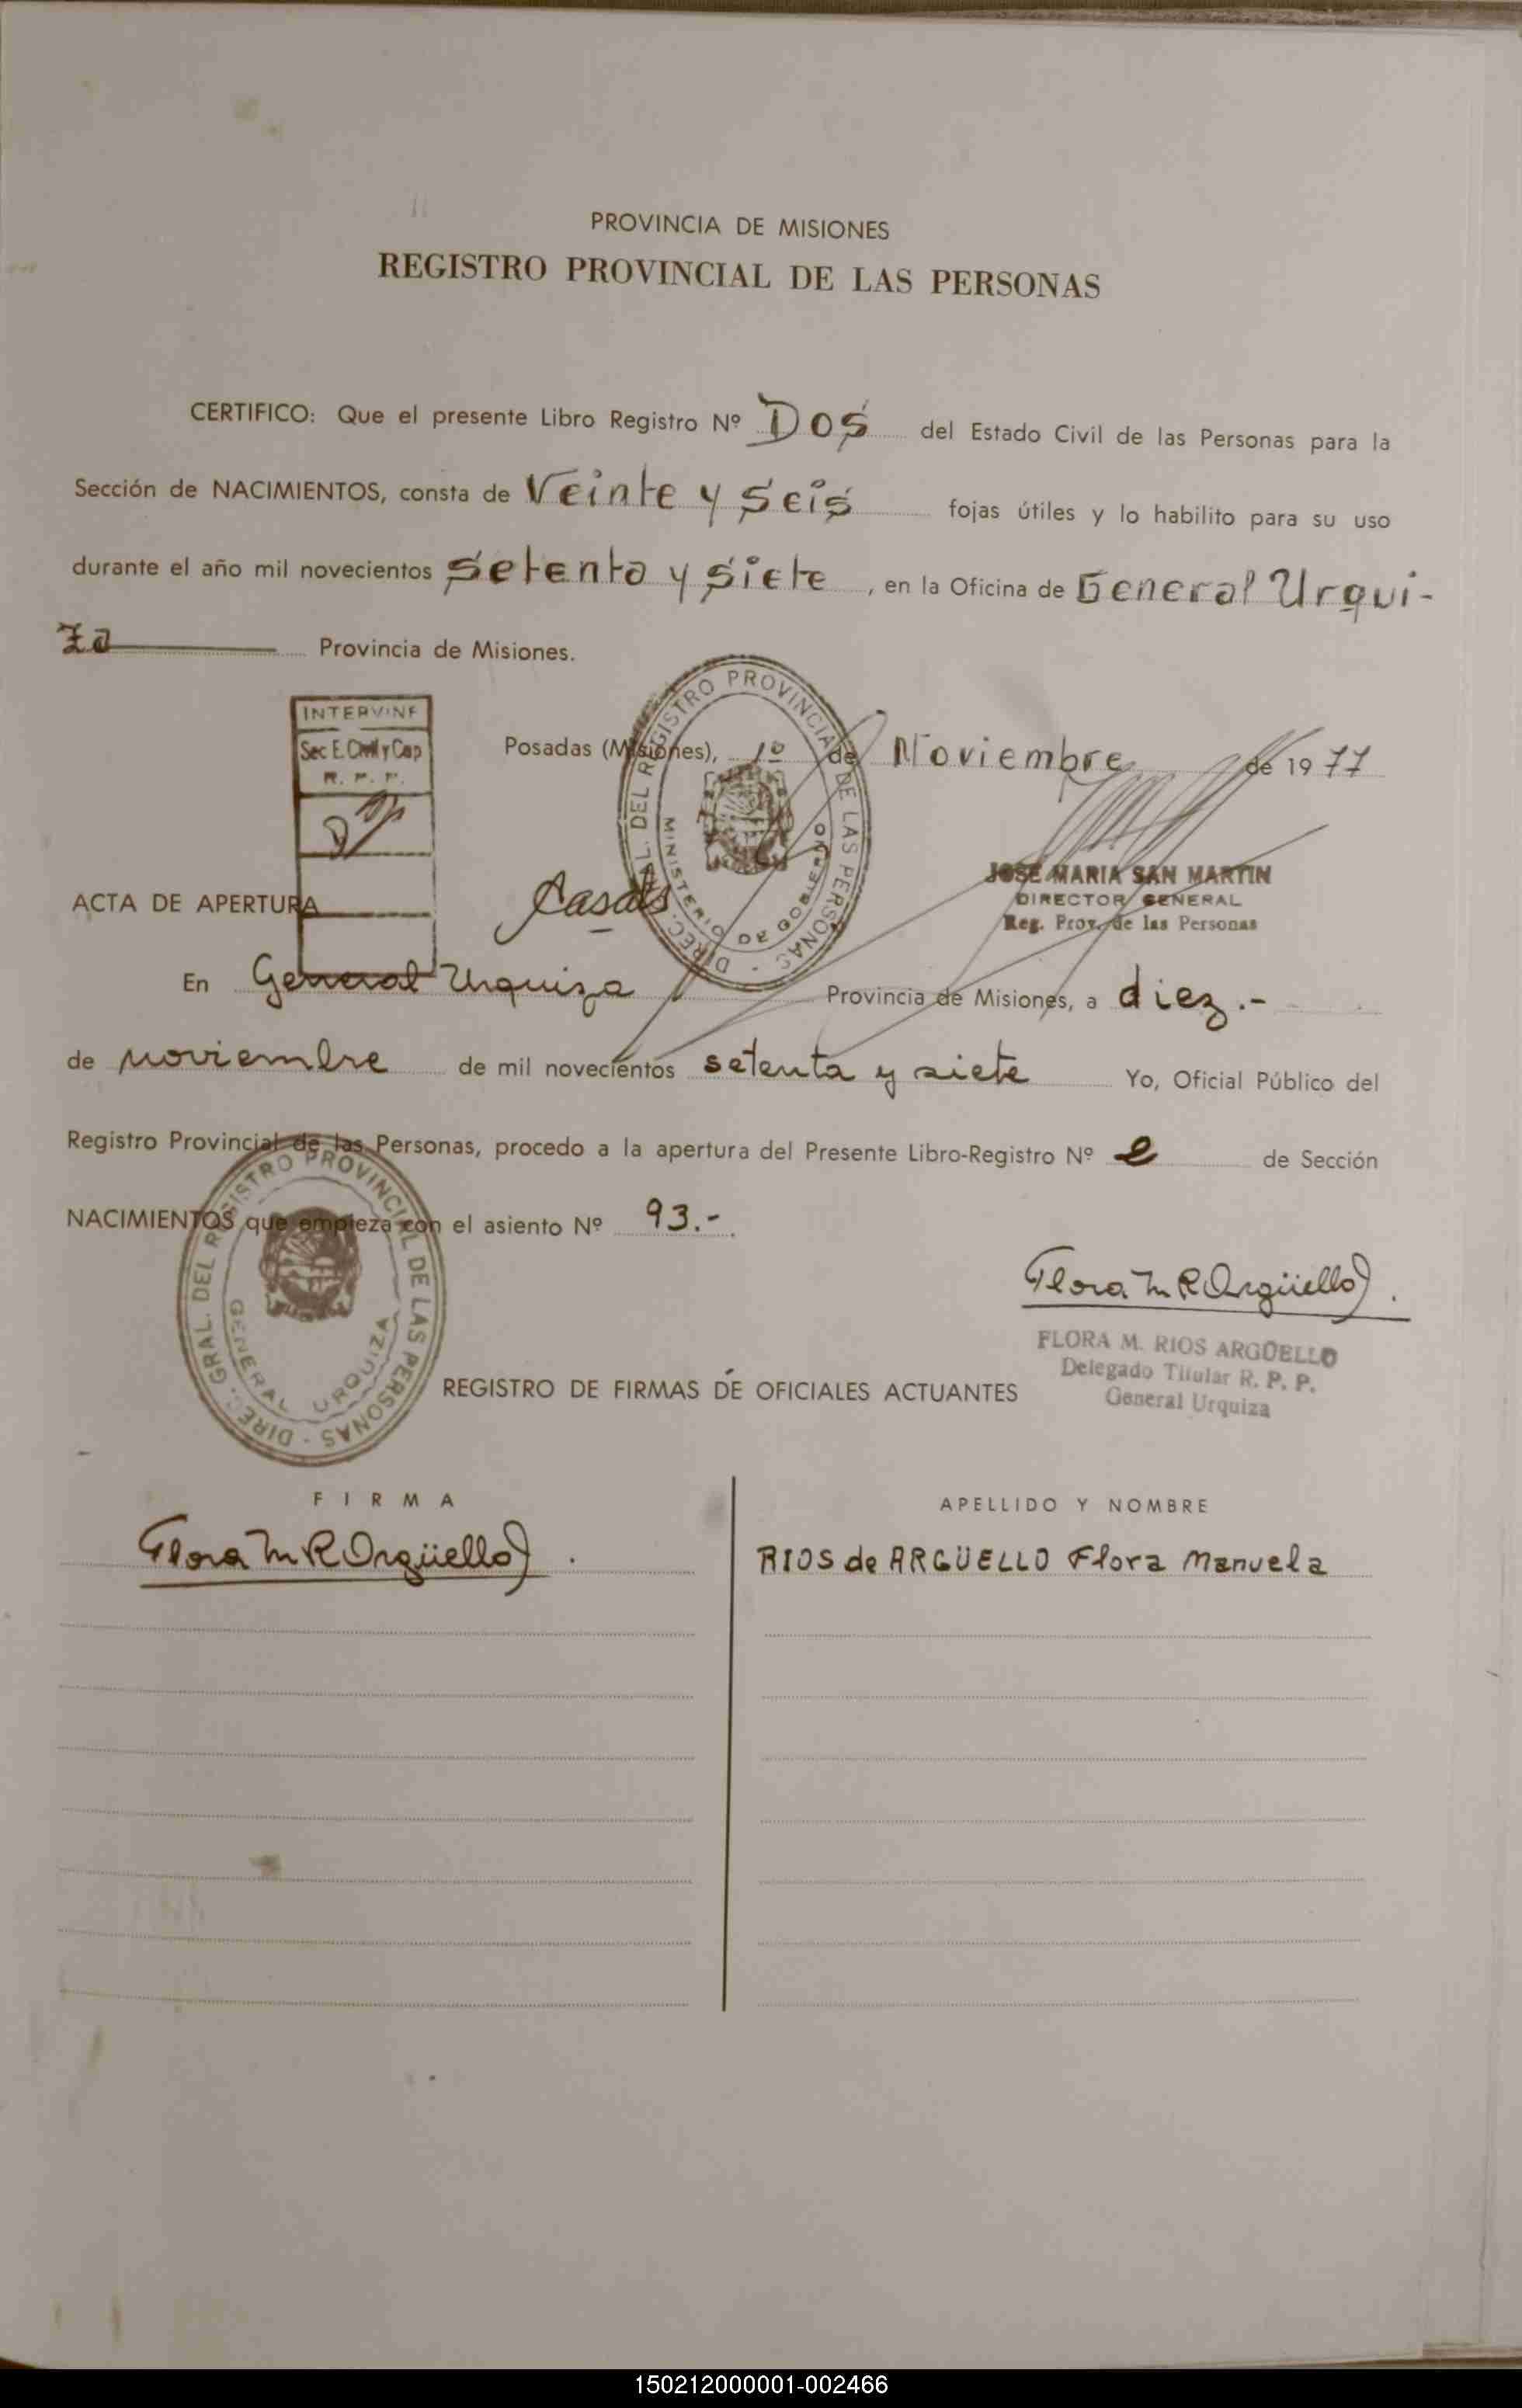 PROVINCIA DE MISIONES
REGISTRO PROVINCIAL DE LAS PERSONAS
CERTIFICO: Que el presente Libro Registro Nº Dos del Estado Civil de las Personas para la
Sección de NACIMIENTOS, consta de Veinte y Seis fojas útiles y lo habilito para su uso
durante el año mil novecientos Setenta y Siete, en la Oficina de General Urqui-
za Provincia de Misiones.
INTERVINE
Sec E. Civil y Cap
R. P. P.
DIREC. GRAL. DEL REGISTRO PROVINCIAL DE LAS PERSONAS -
MINISTERIO DE GOBIERNO
Posadas (Misiones), 1º de Noviembre de 1977
JOSE MARIA SAN MARTIN
DIRECTOR GENERAL
Reg. Prov. de las Personas
ACTA DE APERTURA
En General Urquiza Provincia de Misiones, a diez.-
de noviembre de mil novecientos setenta y siete Yo, Oficial Público del
Registro Provincial de las Personas, procedo a la apertura del Presente Libro-Registro Nº 2 de Sección
NACIMIENTOS que empieza con el asiento Nº 93.-
DIREC. GRAL. DEL REGISTRO PROVINCIAL DE LAS PERSONAS -
GENERAL URQUIZA
Flora M R Argüello.
FLORA M. RIOS ARGÜELLO
Delegado Titular R. P. P.
General Urquiza
REGISTRO DE FIRMAS DE OFICIALES ACTUANTES
FIRMA
APELLIDO Y NOMBRE
Flora M R Argüello.
RIOS de ARGÜELLO Flora Manuela
150212000001-002466